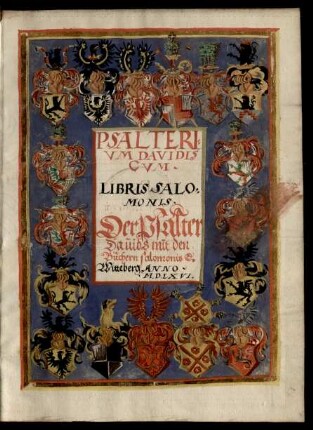 PSALTERI-
VM DAVIDIS
CVM·
LIBRIS SALO-
MONIS·
Der Psalter
Dauids mit den
Büchern salomonis &.
Witeberg. ANNO·
·M·D·LXVI·